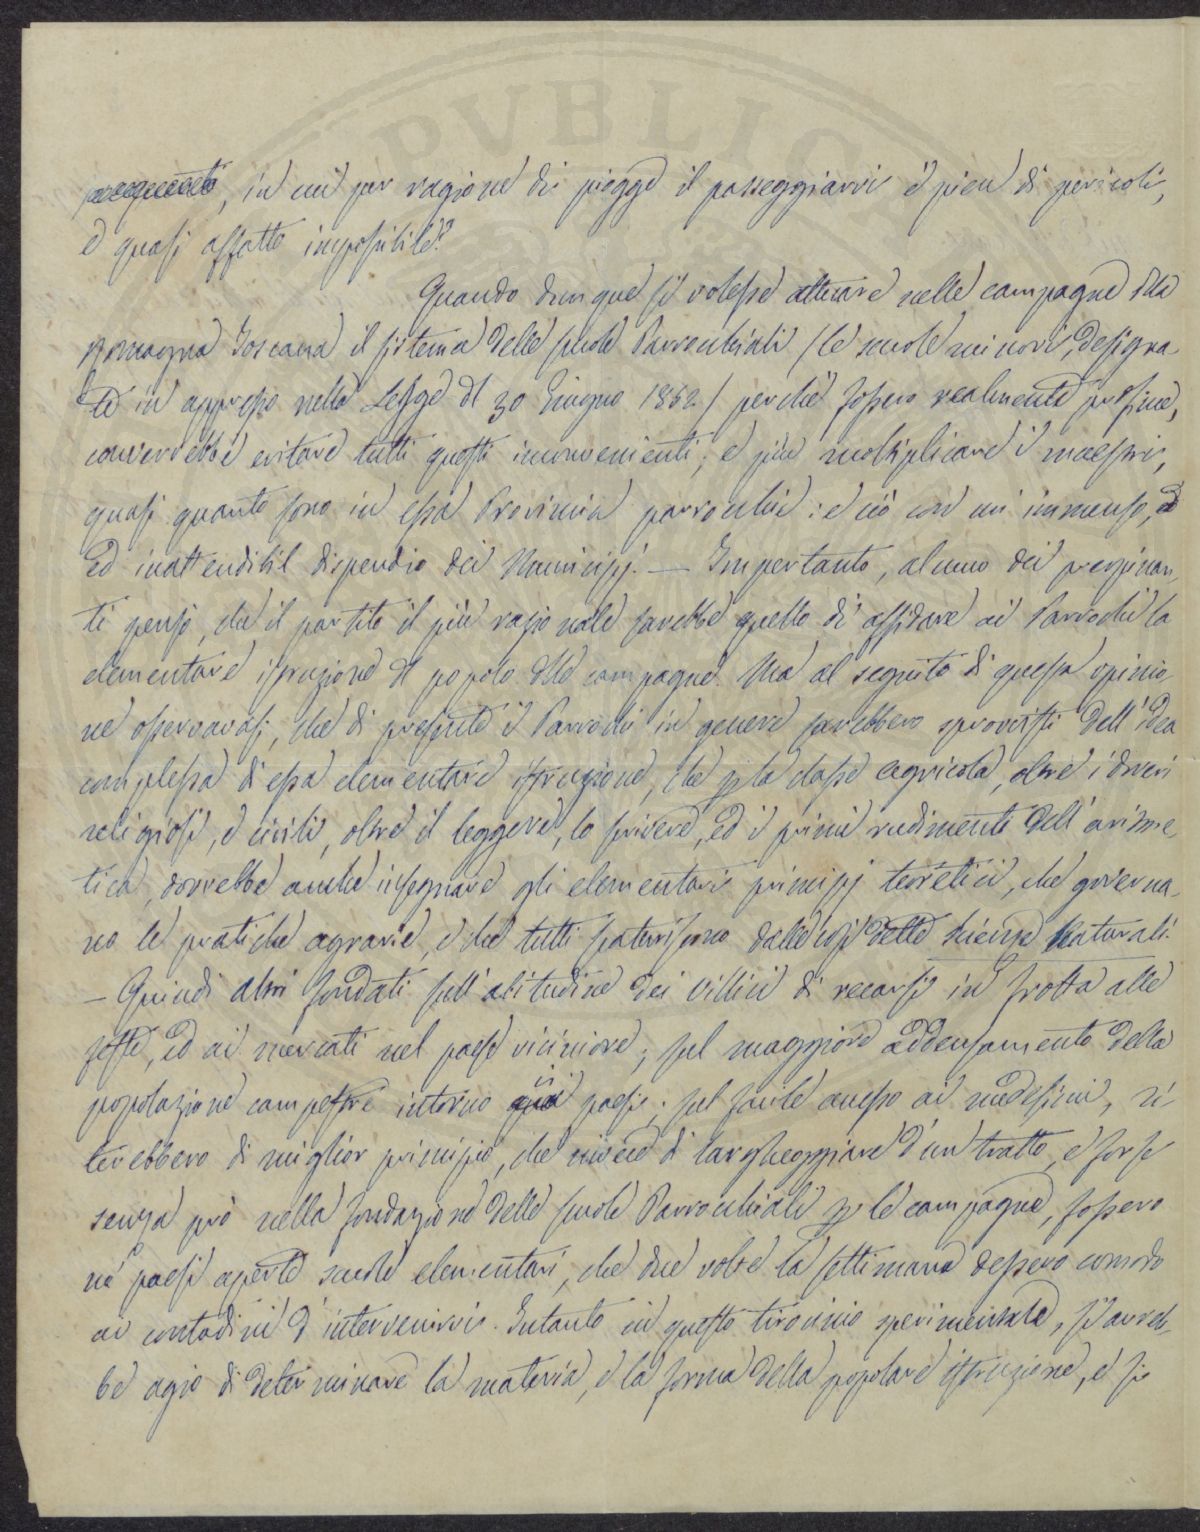 PVBLIC
, in cui per ragione di piogge il passeggiarvi è pien di pericoli,
e quasi affatto impossibile?
Quando dunque si volesse attuare nelle campagne della
Romagna Toscana il sistema delle scuole Parrocchiali (le scuole minori, designa-
te in appresso nella Legge del 30 Giugno 1852) perchè fossero realmente proficue,
converrebbe evitare tutti questi inconvenienti; e più moltiplicare i maestri,
quasi quanto sono in essa Provincia parrocchie: e ciò con un immenso,
ed inattendibil dispendio dei Municipj. — Impertanto, alcuno dei preopinan-
ti pensò, che il partito il più razionale sarebbe quello di affidare ai Parrochi la
elementare istruzione del popolo delle campagne. Ma al seguito di questa opinio-
ne osservavasi, che di presente i Parrochi in genere sarebbero sprovvisti dell'idea
complessa di essa elementare istruzione, che per la classe agricola, oltre i doveri
religiosi, e civili, oltre il leggere, lo scrivere, ed i primi rudimenti dell'aritme-
tica, dovrebbe anche insegnare gli elementari principj teoretici, che governa-
no le pratiche agrarie, e che tutti scaturiscono dalle così dette scienze Naturali.
— Quindi altri fondati sull'abitudine dei villici di recarsi in frotta alle
feste, ed ai mercati nel paese viciniore; sul maggiore addensamento della
popolazione campestre intorno ai paesi; sul facile accesso ai medesimi, ri-
terebbero di miglior principio, che invece di largheggiare d'un tratto, e forse
senza prò nella fondazione delle scuole Parrocchiali per le campagne, fossero
ne' paesi aperte scuole elementari, che due volte la settimana dessero comodo
ai contadini d'intervenirvi. Intanto in questo tirocinio sperimentale, si avreb-
be agio di determinare la materia, e la forma della popolare istruzione, e si